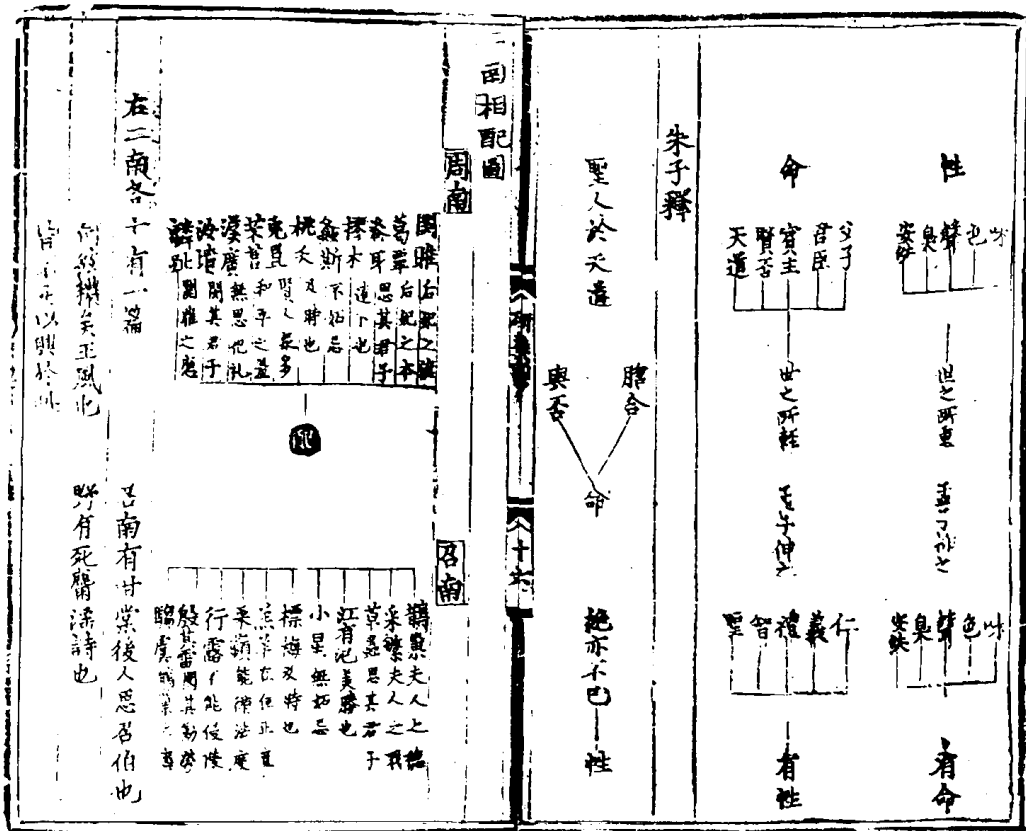 性
味
色
聲
臭
安佚
世之所重
味
色
聲
臭
安佚
有命
命
父子
君臣
賓主
賢否
天道
世之所輕
孟子伸之
仁
義
禮
智
聖
有性
朱子釋
聖人於天道
脗合
與否
命
純亦不已
性
十六
二南相配圖
周南
關雎后妃之德
葛覃后妃之本
卷耳思其君子
樛木逮下也
螽斯不妬忌
桃夭及時也
兔罝賢人衆多
芣苢和平之
漢廣無思犯礼
汝墳閔其君子
麟趾關雎之應
配
召南
鵲巢夫人之德
采蘩夫人之
草蟲思其君子
江有汜美媵也
小星無妬忌
摽梅及時也
羔羊在位正直
采蘋能循法度
行露不能侵陵
殷其雷閔其勤勞
騶虞鵲巢之
右二南各十有一篇
召南有甘棠後人思召伯也
何彼穠矣王風也
野有死麕淫詩也